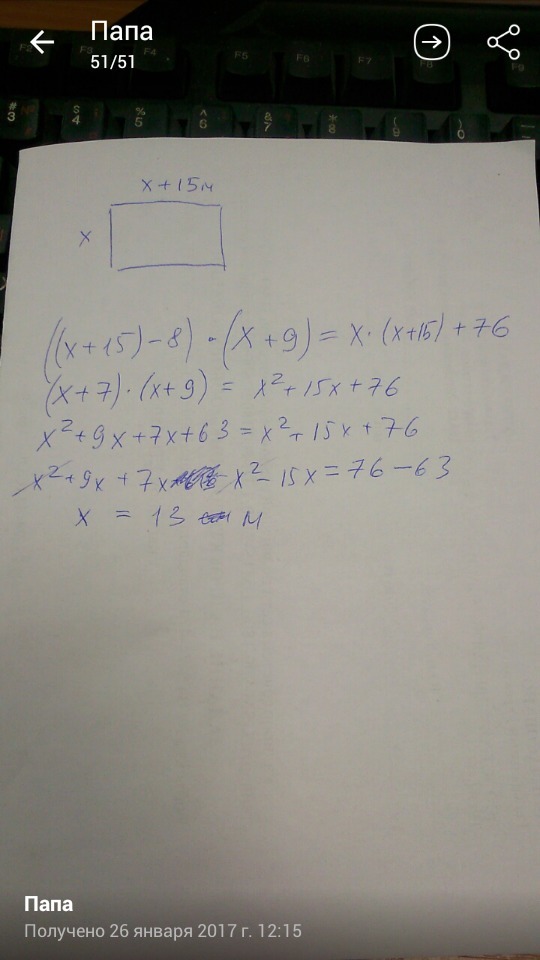 Папа
51/51
F5
F6
F7
F8
F9
#
3
$
4
%
5
^
6
&
7
*
8
(
9
)
0
x + 15 м
x
((x+15)-8) · (x+9) = x · (x+15) + 76
(x+7) · (x+9) = x²+15x+76
x²+9x+7x+63 = x²+15x+76
x²+9x+7x - x² - 15x = 76 - 63
x = 13 м
Папа
Получено 26 января 2017 г. 12:15